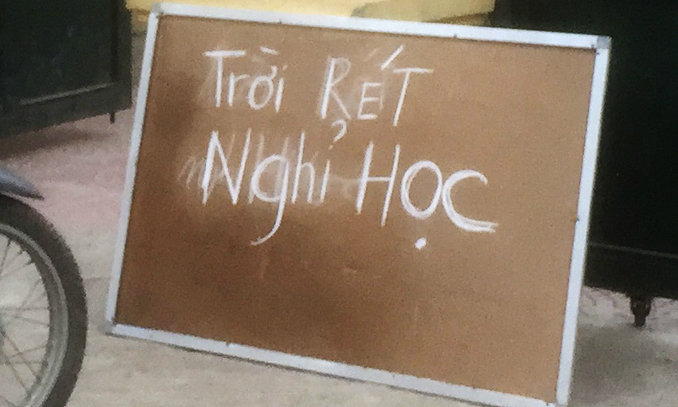 Trời RÉT
Nghỉ HỌC